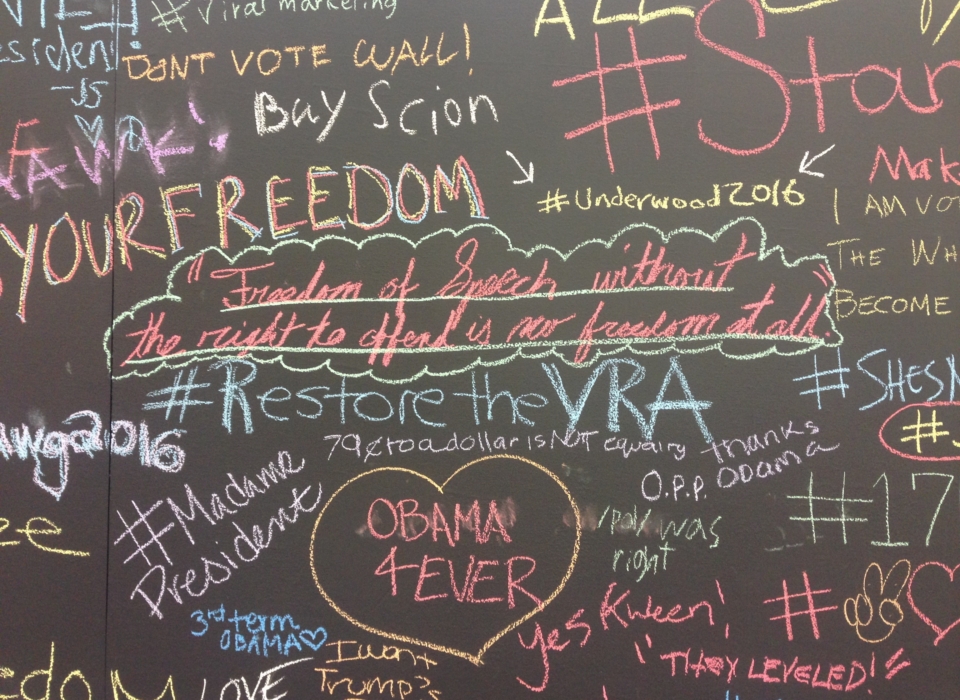 #Viral marketing
DONT VOTE WALL!
Buy Scion
-JS
#Star
#Underwood2016
YOUR FREEDOM
I AM VOT
THE WH
BECOME
"Freedom of Speech without
the right to offend is no freedom at all."
#RestoretheVRA
#SHESN
2016
79¢ to a dollar is NOT equality
thanks
O.P.P. Obama
#Madame
President
OBAMA
4EVER
was
right
#17
3rd term
OBAMA
I want
Trump's
yes Kween!
#
"THEY LEVELED!"
LOVE